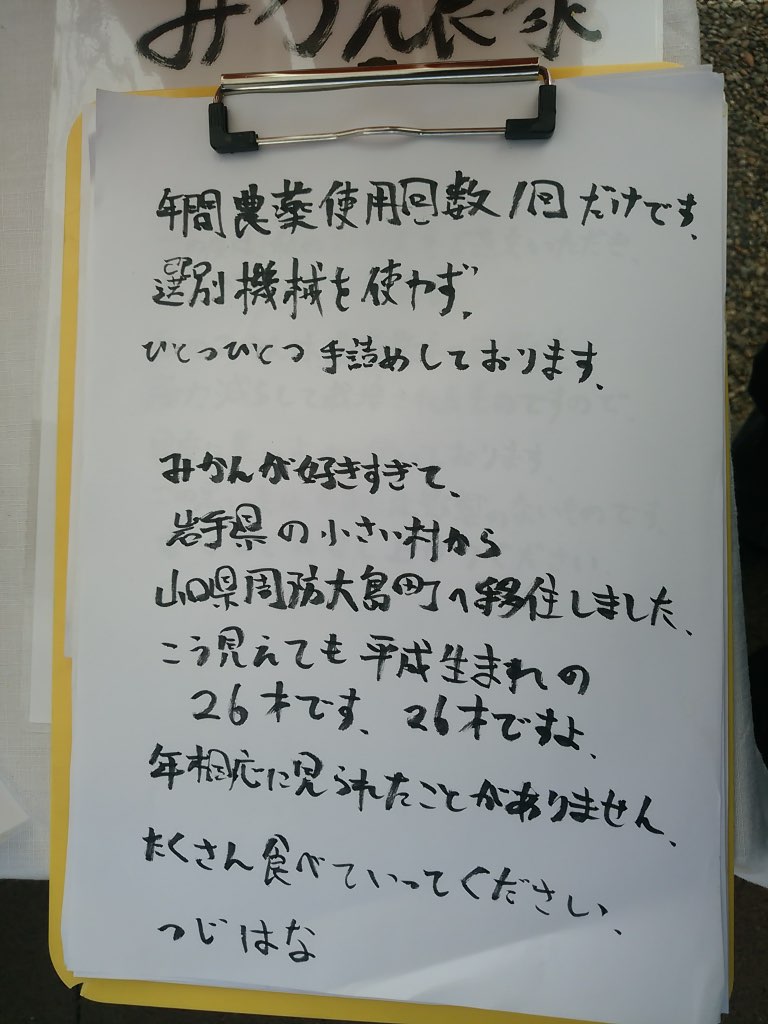 みかん農家
年間農薬使用回数1回だけです。
選別機械を使わず、
ひとつひとつ手詰めしております。
みかんが好きすぎて、
岩手県の小さい村から
山口県周防大島町へ移住しました。
こう見えても平成生まれの
26才です。26才ですよ。
年相応に見られたことがありません。
たくさん食べていってください。
つじはな